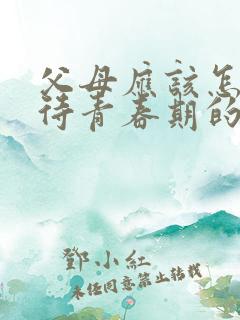 父母應該怎
待青春期的
鄧小紅
未經同意禁止轉載